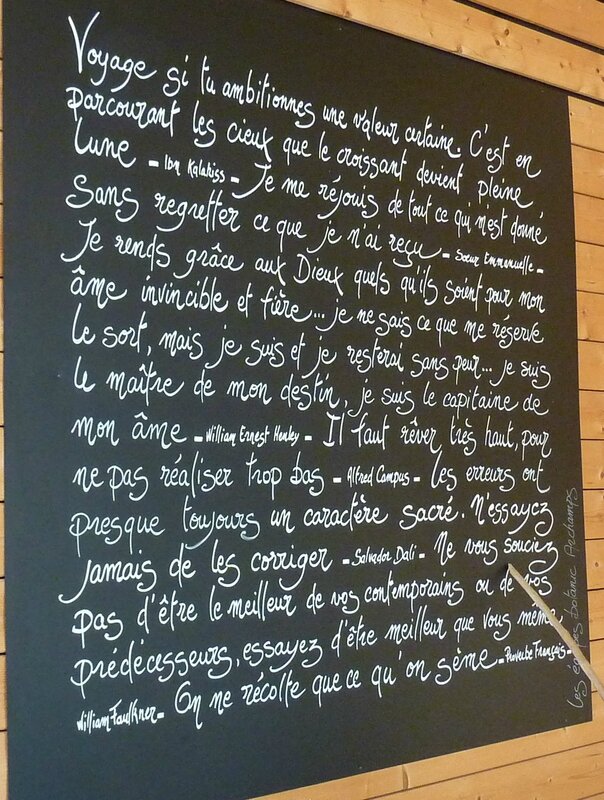 Voyage si tu ambitionnes une valeur certaine. C'est en
parcourant les cieux que le croissant devient pleine
lune - Ibn Kalakiss - Je me réjouis de tout ce qui m'est donné
sans regretter ce que je n'ai reçu - Sœur Emmanuelle -
Je rends grâce aux Dieux quels qu'ils soient pour mon
âme invincible et fière... je ne sais ce que me réserve
le sort, mais je suis et je resterai sans peur... je suis
le maître de mon destin, je suis le capitaine de
mon âme - William Ernest Henley - Il faut rêver très haut, pour
ne pas réaliser trop bas - Alfred Campus - Les erreurs ont
presque toujours un caractère sacré. N'essayez
jamais de les corriger - Salvador Dali - Ne vous souciez
pas d'être le meilleur de vos contemporains ou de vos
prédécesseurs, essayez d'être meilleur que vous même
William Faulkner - On ne récolte que ce qu'on sème - Proverbe Français -
Les équipes botanic Archamps